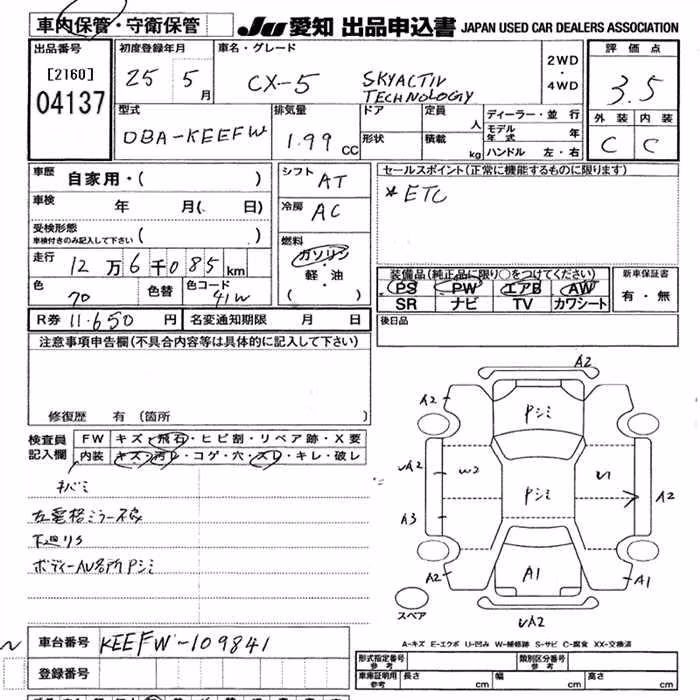 車内保管・守衛保管 JU 愛知 出品申込書 JAPAN USED CAR DEALERS ASSOCIATION
出品番号 初度登録年月 車名・グレード 2WD・4WD 評価点
[2160] 25 5月 CX-5 SKYACTIV TECHNOLOGY 3.5
04137 型式 排気量 ドア 定員 人 ディーラー・並行 外装 内装
DBA-KEEFW 1.99 CC 形状 積載 kg モデル年式 年 C C
ハンドル 左・右
車歴 自家用・( ) シフト AT セールスポイント(正常に機能するものに限ります)
車検 年 月(. 日) 冷房 AC *ETC
受検形態
車検付きのみ記入して下さい ( )
走行 12万6千085km 燃料 ガソリン・軽・油 ( )
装備品(純正品に限り○をつけてください) 新車保証書
色 70 色替 色コード 41W PS PW エアB AW 有・無
SR ナビ TV カワシート
R券 11.650円 名変通知期限 月 日 後日品
注意事項申告欄(不具合内容等は具体的に記入して下さい)
修復歴 有 (箇所
検査員記入欄 FW キズ・飛石・ヒビ割・リペア跡・X要
内装 キズ・汚レ・コゲ・穴・スレ・キレ・破レ
キバミ
左電格ミラー不良
下廻りS
ボディーAU各所Pシミ
A2
A2 Pシミ
UA2 W2 Pシミ U1 A2
A3
A2 A1 A1
スペア UA2
A-キズ E-エクボ U-凹み W-補修跡 S-サビ C-腐食 XX-交換済
車台番号 KEEFW-109841
登録番号
形式指定番号 参考 類別区分番号 参考
車庫証明用 参考 長さ cm 幅 cm 高さ cm